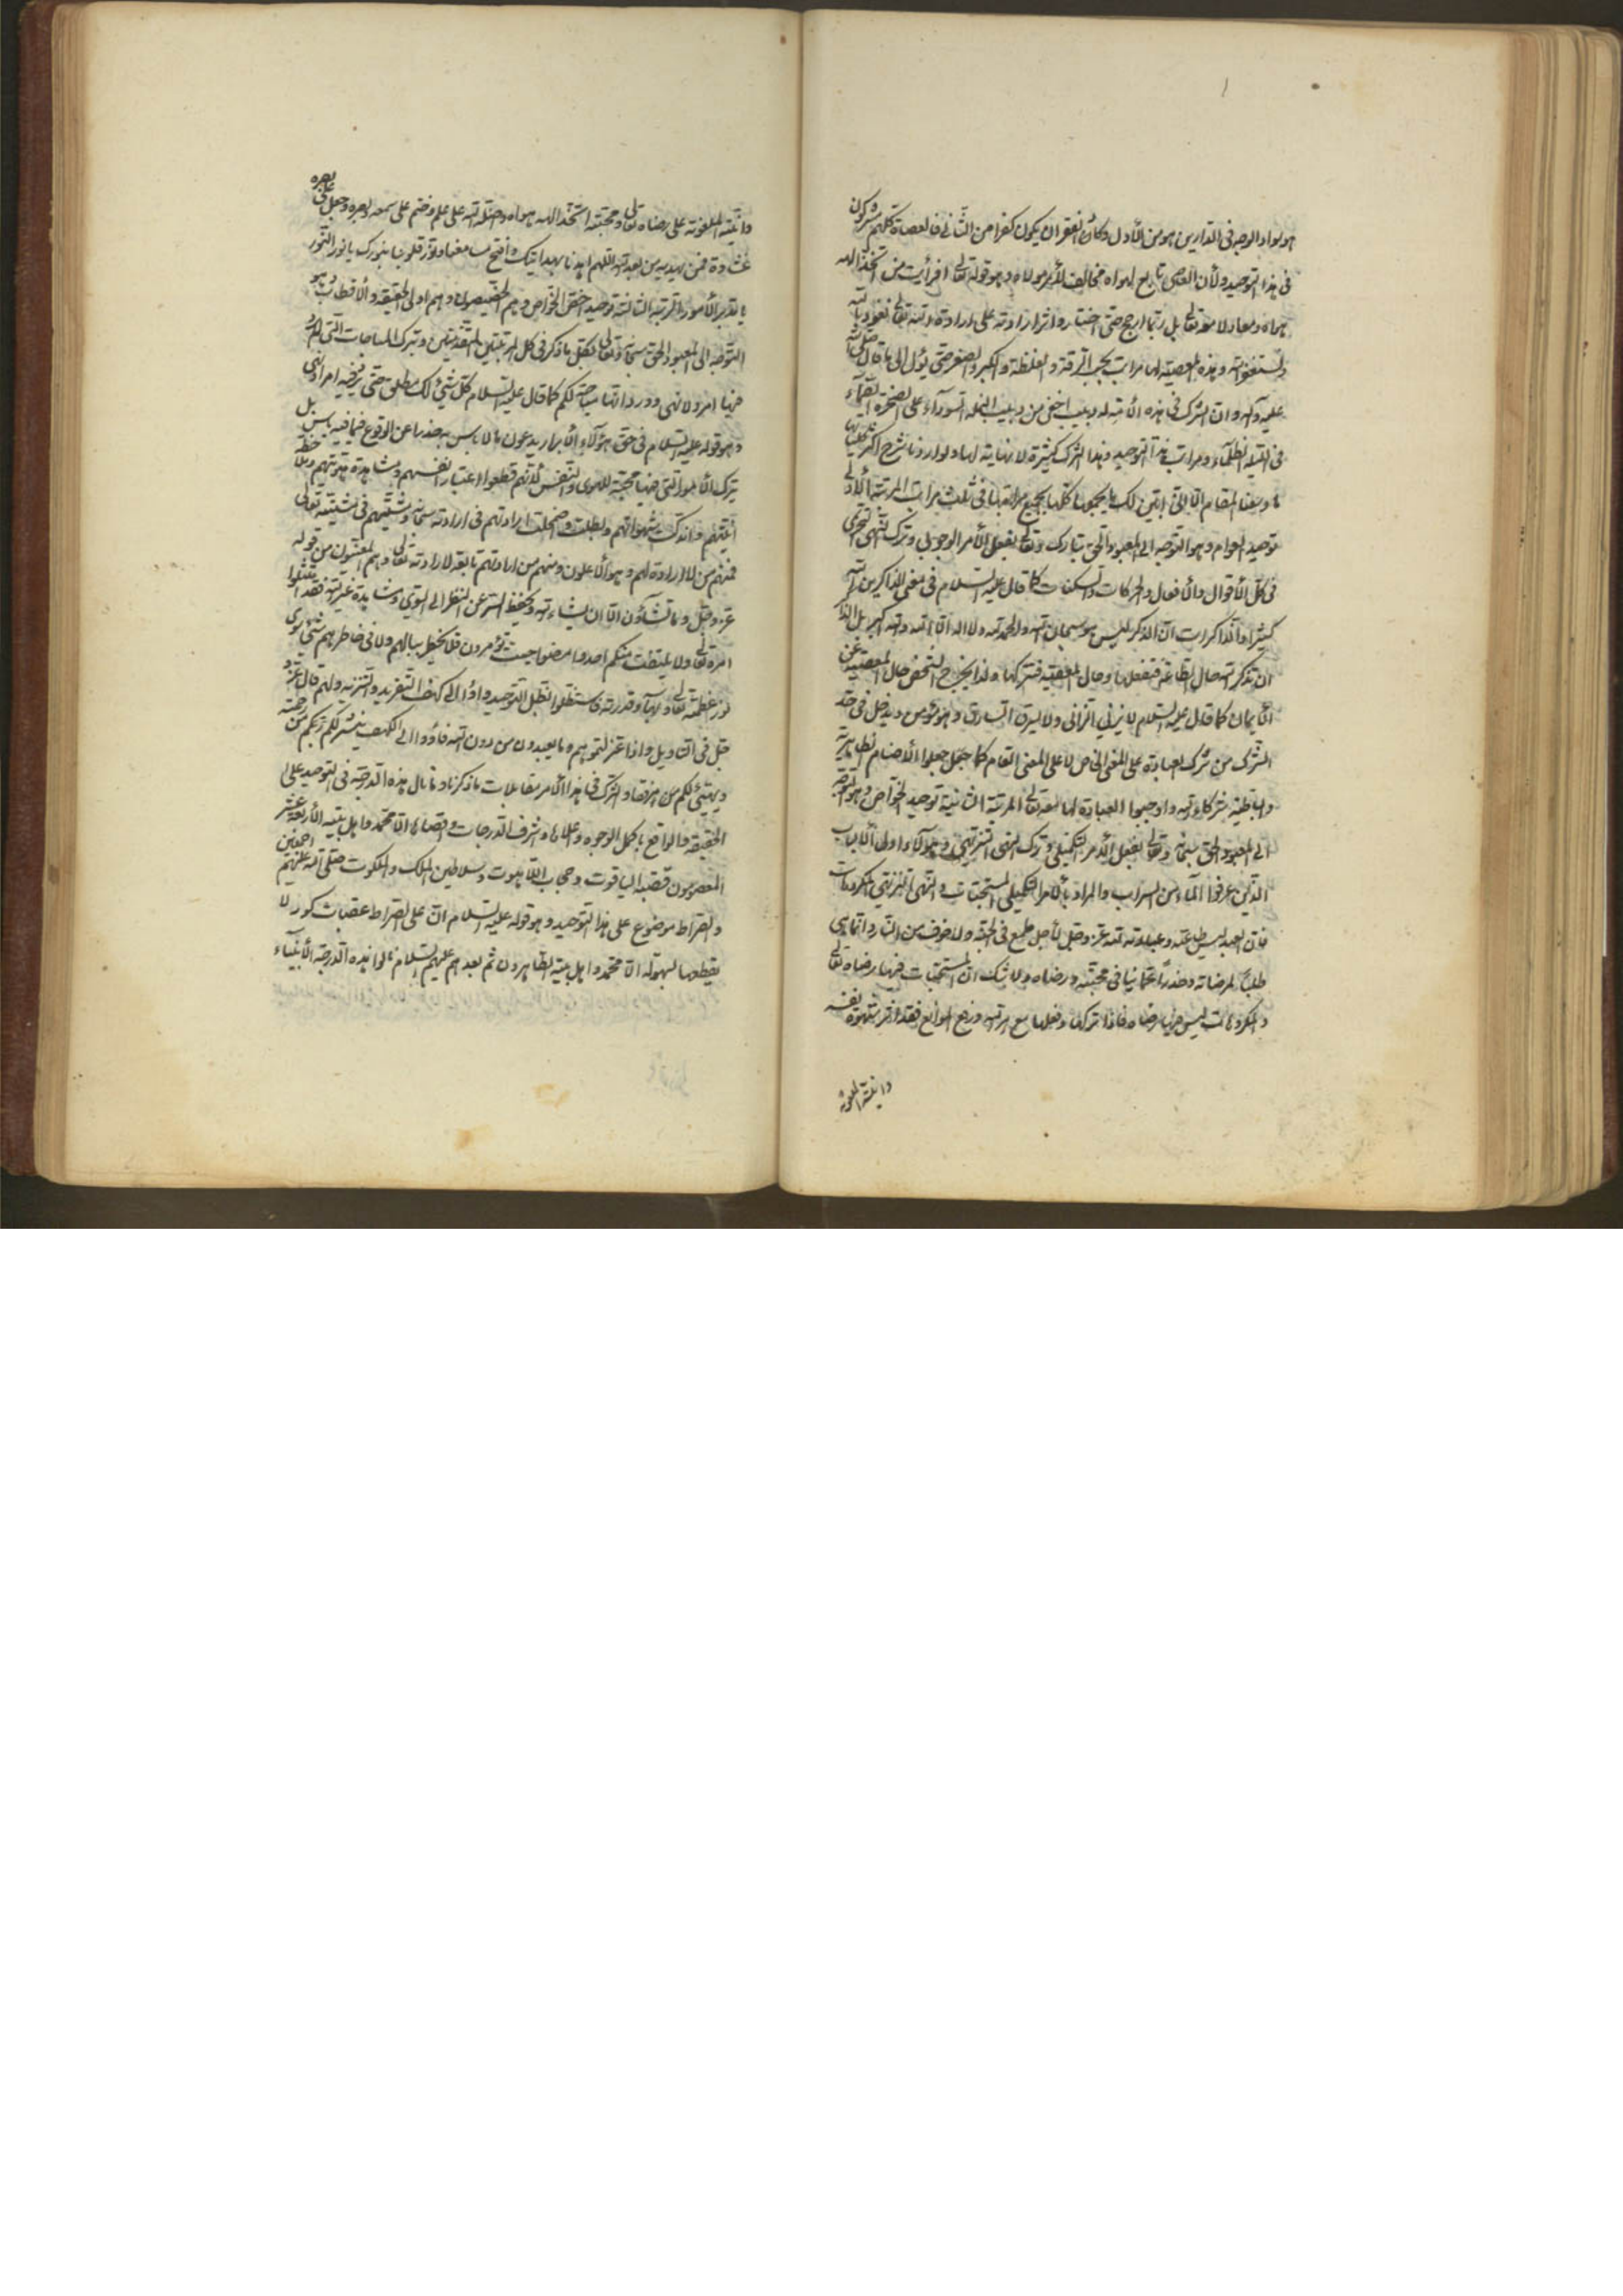 هو سواد الوجه فى الدارين هو من الأول وكأن الفقر ان يكون كفرا من الثانى فالعصاة كلهم مشركون
فى هذا التوحيد ولأن العاصى تابع لهواه مخالف لأمر مولاه وهو قوله تعالى افرأيت من اتخذ الهه
هواه ومعادلا معه تعالى بل ربما ارجح حتى اختاره واثر ارادته على ارادة الله تعالى نعوذ بالله
ونستغفر الله وهذه المعصية لها مراتب بحسب الرقة والغلظة والكبر والصغر حتى يؤل الى ما قال صلى الله
عليه وآله وان الشرك فى هذه الأمة له دبيب اخفى من دبيب النملة السوداء على الصخرة الصماء
فى الليلة الظلماء ومراتب هذا التوحيد وهذا الشرك كثيرة لا نهاية لها ولو اردنا شرح اكثر كلياتها
ما وسعنا المقام الا انى ابين لك ما يجمعها كلها بجميع مراتبها فى ثلث مراتب المرتبة الأولى
توحيد العوام وهو التوجه الى المعبود الحق تبارك وتعالى بفعل الأمر الوجوبى وترك النهى التحريمى
فى كل الأقوال والأفعال والحركات والسكنات كما قال عليه السلام فى معنى الذاكرين الله
كثيرا والذاكرات ان الذكر ليس هو سبحان الله والحمد لله ولا اله الا الله والله اكبر بل الذكر
ان تذكر الله حال الطاعة فتفعلها وحال المعصية فتتركها ولذا يخرج الشخص حال المعصية عن
الأيمان كما قال عليه السلام لا يزنى الزانى ولا يسرق السارق وهو مؤمن ويدخل فى حد
الشرك من شرك العبادة على المعنى الخاص لا على المعنى العام كما جعل جعلوا الأصنام الظاهرية
والباطنية شركاء لله واوجبوا العبادة لها معه تعالى المرتبة الثانية توحيد الخواص وهو التوجه
الى المعبود الحق سبحانه وتعالى بفعل الأمر التكميلى وترك النهى التنزيهى وهؤلاء اولى الألباب
الذين عرفوا الماء من السراب والمراد بالأمر التكميلى المستحبات والنهى التنزيهى المكروهات
فان العبد يسطيل عنه وعبادته لله عز وجل لأجل طمع فى الجنة ولا خوف من النار وانما هى
طلبا لمرضاته وحذرا عما ينافى محبته ورضاه ولا شك ان المستحبات فيها رضاه تعالى
والمكروهات ليس فيها رضاه فاذا تركها وفعلها مع ورفع الموانع فقد اثر شهوة نفسه
وانيته الملعونة
وانيته الملعونة على رضاه تعالى ومحبته اتخذ الهه هواه واضله الله على علم وختم على سمعه وقلبه وجعل على بصره
غشاوة فمن يهديه من بعد الله اللهم اهدنا بهدايتك وافتح مسامعنا ونور قلوبنا بنورك يا نور النور
يا مدبر الأمور المرتبة الثالثة توحيد اخص الخواص وهم الخصيصون وهم اولى الحقيقة والأقطاب وهو
التوجه الى المعبود الحق سبحانه وتعالى بفعل ما ذكر فى كل المرتبتين المتقدمتين وبترك المباحات التى لم يرد
فيها امر ولا نهى وورد انها مباحة لكم كما قال عليه السلام كل شىء لك مطلق حتى يرد فيه امر او نهى
وهو قوله عليه السلام فى حق هؤلاء الأبرار يدعون ما لا بأس به حذرا عن الوقوع فيما فيه بأس بل
يترك الأمور التى فيها محبة للهوى والنفس لأنهم قطعوا الاعتبار انفسهم ومشاهدة هويتهم وملاحظة
انيتهم واندكت شهواتهم وبطلت واضمحلت ارادتهم فى ارادته سبحانه ومشيتهم فى مشيته تعالى
فمنهم من لا ارادة لهم وهو الأعلون ومنهم من ارادتهم تابعة لارادته تعالى وهم المعنيون من قوله
عز وجل وما تشاؤن الا ان يشاء الله وبحفظ السر عن النظر الى السوى ومشاهدة غير الله فقد امتثلوا
امره تعالى ولا يلتفت منكم احد وامضوا حيث تؤمرون فلا يخطر ببالهم ولا فى خاطرهم شىء سوى
نور عظمته تعالى وبهاء قدرته فاستظلوا بظل التوحيد واؤا الى كهف التفريد والتنزيه ولهم قال عز و
جل فى التأويل واذا عتزلتموهم وما يعبدون من دون الله فأووا الى الكهف ينشر لكم ربكم من رحمته
ويهيئ لكم من امركم مرفقا والشرك فى هذا الأمر مقابلات ما ذكرنا وما نال هذه الدرجة فى التوحيد على
الحقيقة والواقع بأكمل الوجوه واعلاها واشرف الدرجات واقصاها الا محمد واهل بيته الأربعة عشر
المعصومون قصبة الياقوت وحجاب اللاهوت وسلاطين الملك والملكوت صلى الله عليهم اجمعين
والصراط موضوع على هذا التوحيد وهو قوله عليه السلام ان على الصراط عقبات كؤد لا
يقطعها بسهولة الا محمد واهل بيته الطاهرون ثم بعدهم عليهم السلام نالوا هذه الدرجة الأنبياء